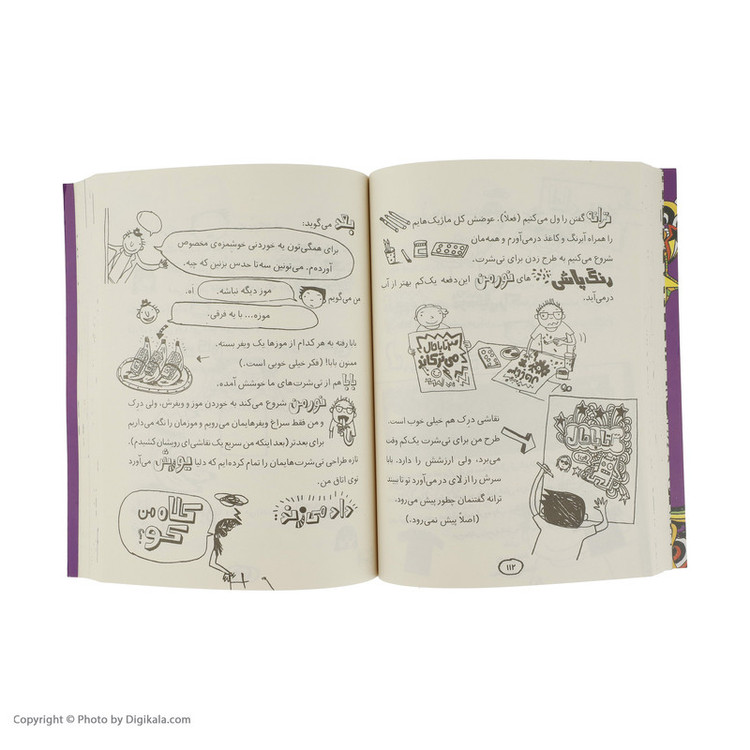 ترانه گفتن را ول می‌کنیم (فعلاً). عوضش کل ماژیک‌هایم
را همراه آبرنگ و کاغذ درمی‌آورم و همه‌مان
شروع می‌کنیم به طرح زدن برای تی‌شرت.
رنگ‌پاشی های نورمن این‌دفعه یک‌کم بهتر از آب
درمی‌آید.
نقاشی درک هم خیلی خوب است.
طرح من برای تی‌شرت یک‌کم وقت
می‌برد، ولی ارزشش را دارد. بابا
سرش را از لای در می‌آورد تو تا ببیند
ترانه گفتنمان چطور پیش می‌رود.
(اصلاً پیش نمی‌رود.)
۱۱۲
بابا می‌گوید:
برای همگی‌تون یه خوردنی خوشمزه‌ی مخصوص
آورده‌م. می‌تونین سه‌تا حدس بزنین که چیه.
من می‌گویم
موز دیگه نباشه.
اَه.
موزه... با یه فرقی.
بابا رفته به هر کدام از موزها یک ویفر بسته.
ممنون بابا! (فکر خیلی خوبی است.)
بابا هم از تی‌شرت‌های ما خوشش آمده.
نورمن شروع می‌کند به خوردن موز و ویفرش، ولی درک
و من فقط سراغ ویفرهایمان می‌رویم و موزمان را نگه می‌داریم
برای بعدتر (بعد اینکه من سریع یک نقاشی‌ای رویشان کشیدم).
تازه طراحی تی‌شرت‌هایمان را تمام کرده‌ایم که دلیا یورش می‌آورد
توی اتاق من.
داد می‌زند:
کلاه من کو؟
Copyright © Photo by Digikala.com